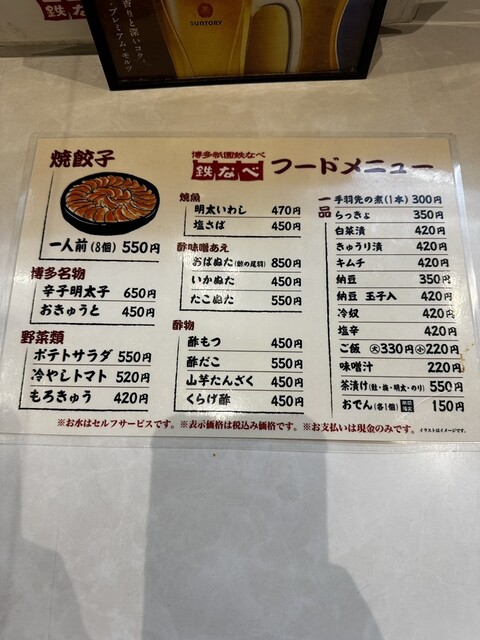 香りと深いコク。
・プレミアム・モルツ
SUNTORY
焼餃子
一人前(8個) 550円
博多名物
辛子明太子 650円
おきゅうと 450円
野菜類
ポテトサラダ 550円
冷やしトマト 520円
もろきゅう 420円
博多祇園鉄なべ
鉄なべ フードメニュー
焼魚
明太いわし 470円
塩さば 450円
酢味噌あえ
おばぬた(鯨の尾羽) 850円
いかぬた 450円
たこぬた 550円
酢物
酢もつ 450円
酢だこ 550円
山芋たんざく 450円
くらげ酢 450円
一品
手羽先の煮(1本) 300円
らっきょ 350円
白菜漬 420円
きゅうり漬 420円
キムチ 420円
納豆 350円
納豆 玉子入 420円
冷奴 420円
塩辛 420円
ご飯 大330円 小220円
味噌汁 220円
茶漬け(鮭・梅・明太・のり) 550円
おでん(各1個) 150円
※お水はセルフサービスです。※表示価格は税込み価格です。※お支払いは現金のみです。
イラストはイメージです。